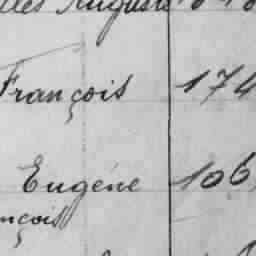 Auguste
François 174
Eugène 106
nçois